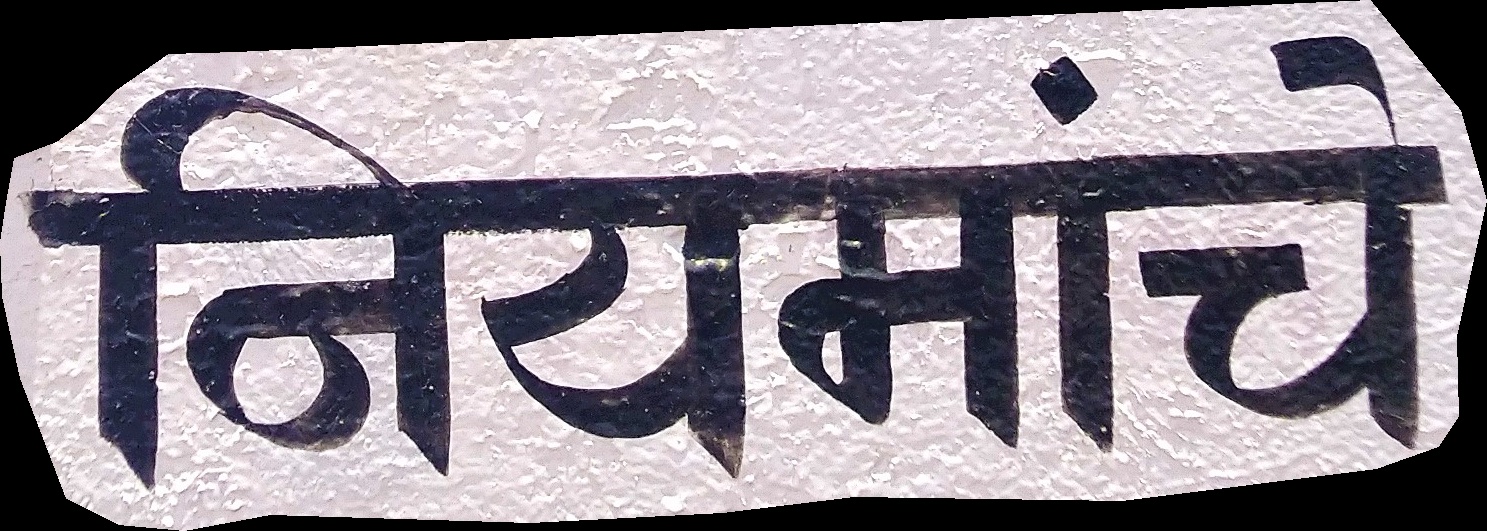 नियमांचे